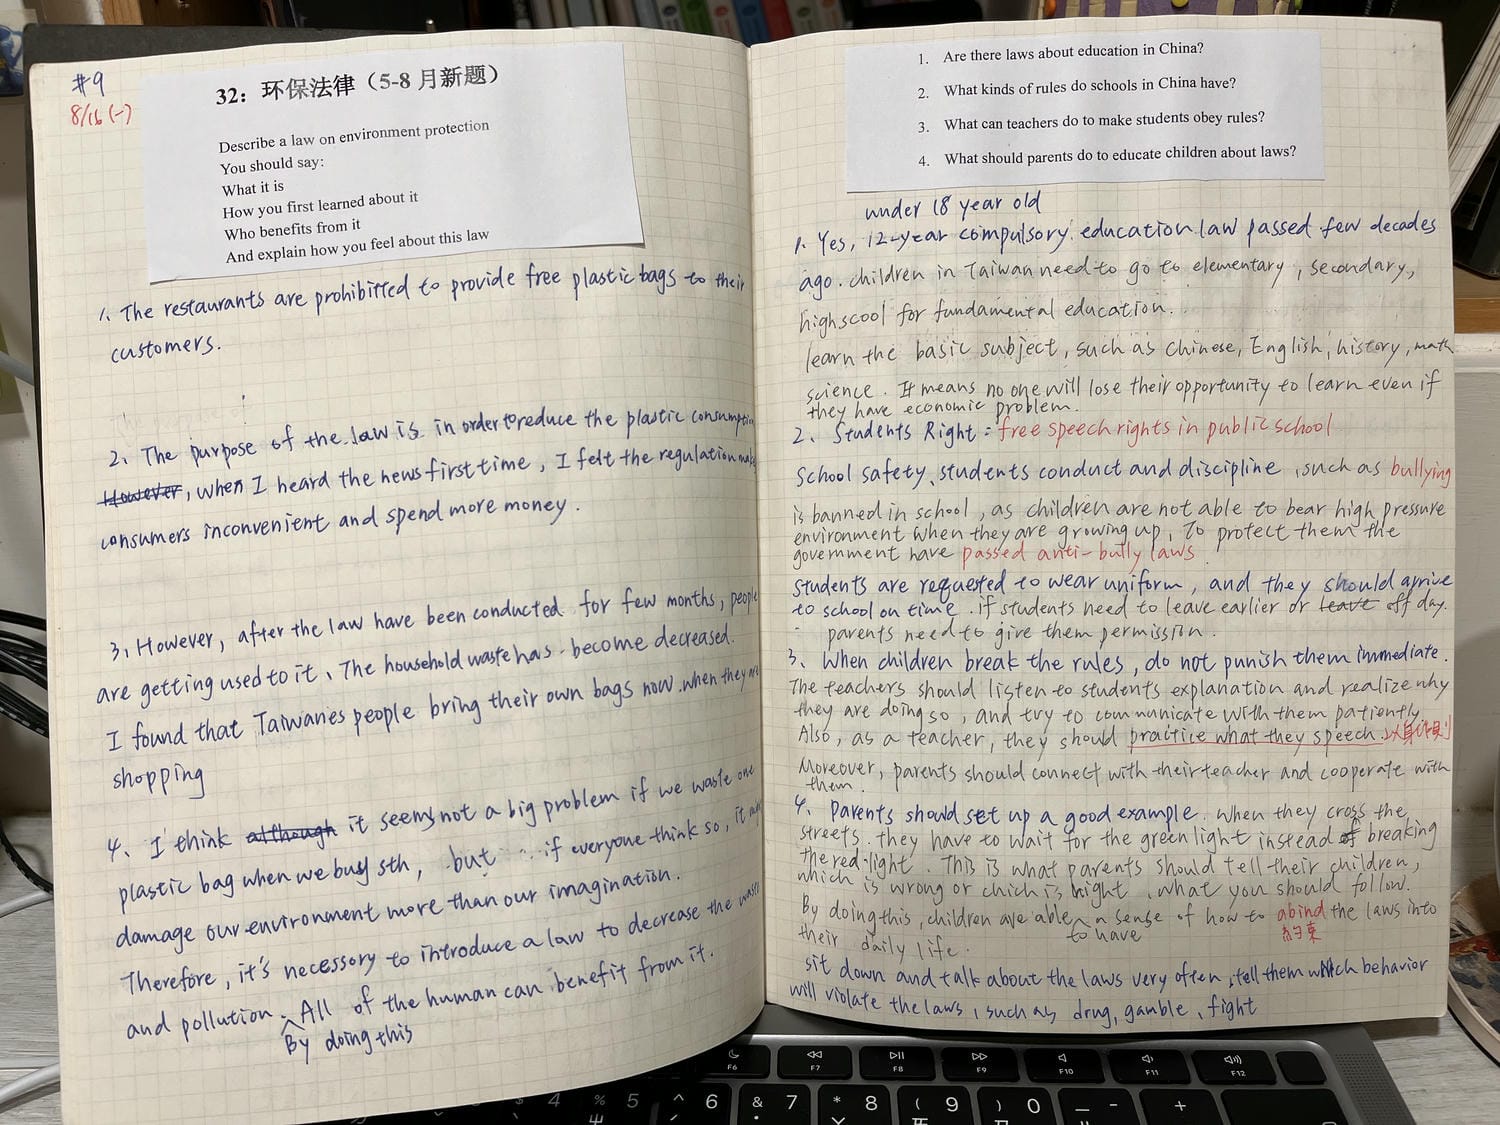 #9
8/16 (一)
32：环保法律（5-8 月新题）
Describe a law on environment protection
You should say:
What it is
How you first learned about it
Who benefits from it
And explain how you feel about this law
1. The restaurants are prohibitted to provide free plastic bags to their
customers.
2. The purpose of the law is in order to reduce the plastic
However, when I heard the news first time, I felt the regulation
consumers inconvenient and spend more money.
3. However, after the law have been conducted for few months, people
are getting used to it. The household waste has become decreased.
I found that Taiwanes people bring their own bags now when they
shopping
4. I think although it seems not a big problem if we waste one
plastic bag when we buy sth, but if everyone think so, it
damage our environment more than our imagination.
Therefore, it's necessary to introduce a law to decrease the
and pollution. All of the human can benefit from it.
By doing this
1. Are there laws about education in China?
2. What kinds of rules do schools in China have?
3. What can teachers do to make students obey rules?
4. What should parents do to educate children about laws?
under 18 year old
1. Yes, 12-year compulsory education law passed few decades
ago. children in Taiwan need to go to elementary, secondary,
highscool for fundamental education.
learn the basic subject, such as Chinese, English, history, math
science. It means no one will lose their opportunity to learn even if
they have economic problem.
2. Students Right: free speech rights in public school
School safety, students conduct and discipline, such as bullying
is banned in school, as children are not able to bear high pressure
environment when they are growing up, To protect them the
government have passed anti-bully laws
Students are requested to wear uniform, and they should arrive
to school on time. if students need to leave earlier or leave off day.
parents need to give them permission.
3. When children break the rules, do not punish them immediate.
The teachers should listen to students explanation and realize why
they are doing so, and try to communicate with them patiently
Also, as a teacher, they should practice what they speech. 以身作則
Moreover, parents should connect with their teacher and cooperate with
them.
4. Parents should set up a good example. When they cross the
streets. they have to wait for the green light instead of breaking
the red-light. This is what parents should tell their children,
which is wrong or chich is hight, what you should follow.
By doing this, children are able a sense of how to abind the laws into
to have
約束
their daily life.
sit down and talk about the laws very often, tell them which behavior
will violate the laws, such as drug, gamble, fight
F6
F7
F8
F9
F10
F11
F12
$ 4
% 5
^ 6
& 7
* 8
( 9
) 0
_ -
+